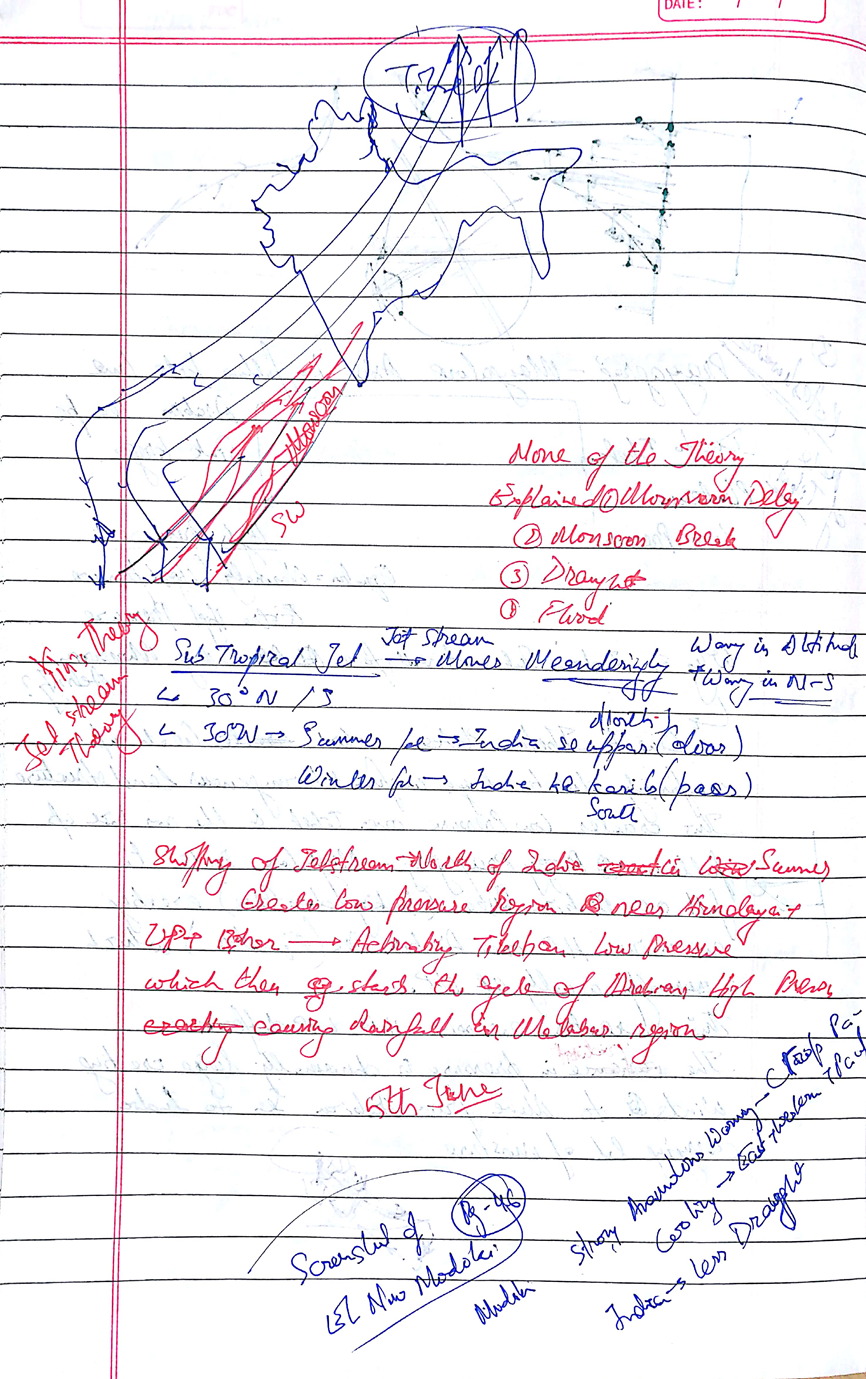 DATE: / /
Tibet
Monsoon
SW
None of the Theory
Explained ① Monsoon Delay
② Monsoon Break
③ Draught
Flood
Theory
Jet stream
Theory
Sub Tropical Jet Jet stream → Moves Meanderingly
Wavy in Altitude
+ Wavy in N-S
↳ 30° N / S
↳ 30° N → Summer me → India se uppar (door)
North
Winter me → India ke karib (paas)
South
Shifting of Jetstream North of India in Summer
Creates low pressure region near Himalaya +
UP + Bihar → Activating Tibetan Low Pressure
which then starts the cycle of Arabian High Press
causing Rainfall in Malabar region
5th June
Screenshot of Pg-46
El Nino Modoki
Modoki
Strong Anamolous Warming → Trop Pa-
Cooling → East + Western T Paci
India → Less Draught